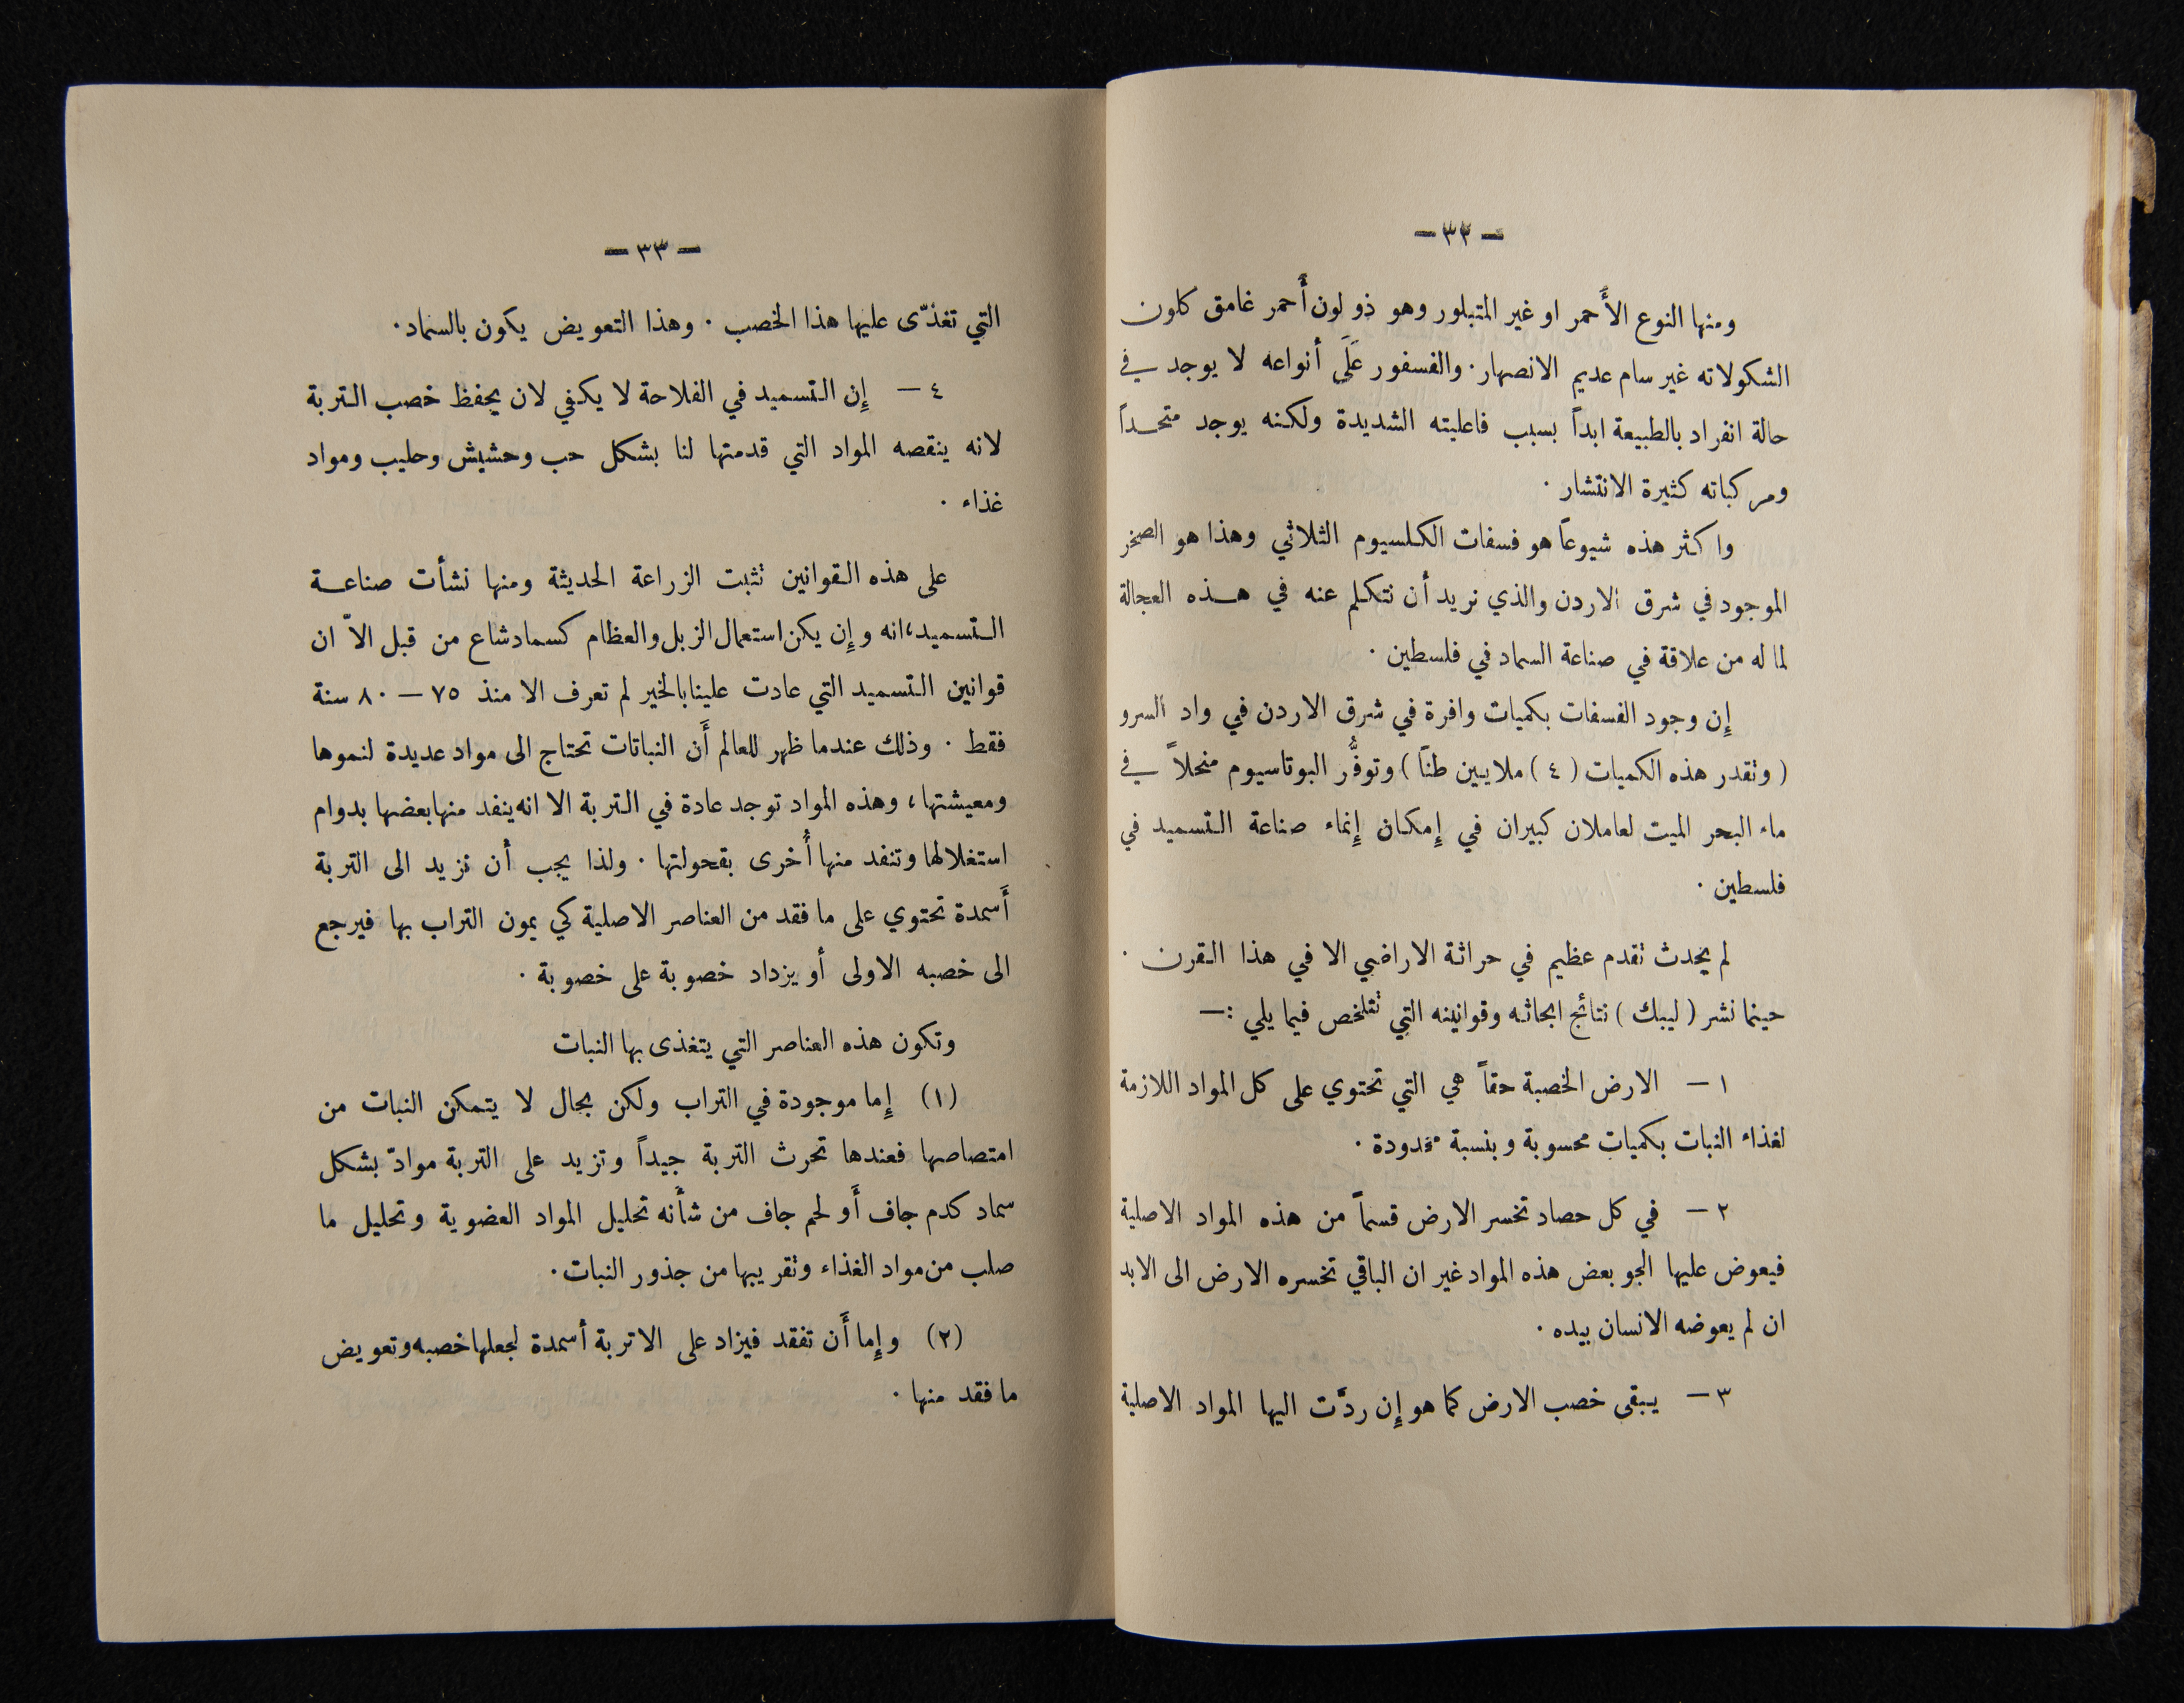 — ٣٢ —
ومنها النوع الأَحمر او غير المتبلور وهو ذو لون أَحمر غامق كلون
الشكولاته غير سام عديم الانصهار . والفسفور عَلَى أنواعه لا يوجد في
حالة انفراد بالطبيعة ابداً بسبب فاعليته الشديدة ولكنه يوجد متحداً
ومركباته كثيرة الانتشار .
واكثر هذه شيوعاً هو فسفات الكلسيوم الثلاثي وهذا هو الصخر
الموجود في شرق الاردن والذي نريد أن نتكلم عنه في هذه العجالة
لما له من علاقة في صناعة السماد في فلسطين .
إِن وجود الفسفات بكميات وافرة في شرق الاردن في واد السرو
( وتقدر هذه الكميات ( ٤ ) ملايين طنًا ) وتوفُّر البوتاسيوم منحلاً في
ماء البحر الميت لعاملان كبيران في إِمكان إِنماء صناعة التسميد في
فلسطين .
لم يحدث تقدم عظيم في حراثة الاراضي الا في هذا القرن .
حينما نشر ( ليبك ) نتائج ابحاثه وقوانينه التي تتلخص فيما يلي :—
١ — الارض الخصبة حقاً هي التي تحتوي على كل المواد اللازمة
لغذاء النبات بكميات محسوبة وبنسبة محدودة .
٢ — في كل حصاد تخسر الارض قسماً من هذه المواد الاصلية
فيعوض عليها الجو بعض هذه المواد غير ان الباقي تخسره الارض الى الابد
ان لم يعوضه الانسان بيده .
٣ — يبقى خصب الارض كما هو إِن ردَّت اليها المواد الاصلية
— ٣٣ —
التي تغذّى عليها هذا الخصب . وهذا التعويض يكون بالسماد .
٤ — إِن التسميد في الفلاحة لا يكفي لان يحفظ خصب التربة
لانه ينقصه المواد التي قدمتها لنا بشكل حب وحشيش وحليب ومواد
غذاء .
على هذه القوانين تثبت الزراعة الحديثة ومنها نشأت صناعة
التسميد، انه وإِن يكن استعمال الزبل والعظام كسماد شاع من قبل الاّ ان
قوانين التسميد التي عادت علينا بالخير لم تعرف الا منذ ٧٥ — ٨٠ سنة
فقط . وذلك عندما ظهر للعالم أَن النباتات تحتاج الى مواد عديدة لنموها
ومعيشتها ، وهذه المواد توجد عادة في التربة الا انه ينفد منها بعضها بدوام
استغلالها وتنفد منها أُخرى بقحولتها . ولذا يجب أن نزيد الى التربة
أَسمدة تحتوي على ما فقد من العناصر الاصلية كي يمون التراب بها فيرجع
الى خصبه الاولى أو يزداد خصوبة على خصوبة .
وتكون هذه العناصر التي يتغذى بها النبات
(١) إِما موجودة في التراب ولكن بحال لا يتمكن النبات من
امتصاصها فعندها تحرث التربة جيداً وتزيد على التربة موادّ بشكل
سماد كدم جاف أَو لحم جاف من شأَنه تحليل المواد العضوية وتحليل ما
صلب من مواد الغذاء وتقريبها من جذور النبات .
(٢) وإِما أَن تفقد فيزاد على الاتربة أسمدة لجعلها خصبه وتعويض
ما فقد منها .